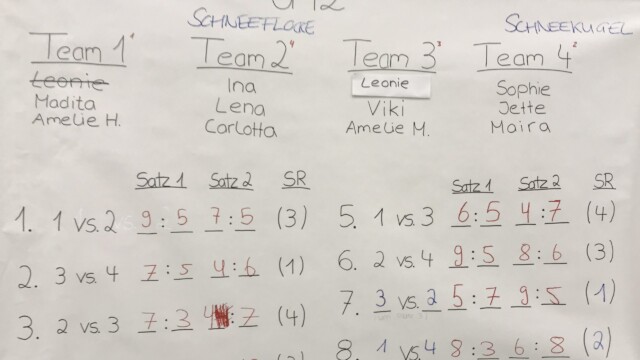 U12
SCHNEEFLOCKE SCHNEEKUGEL
Team 1 Team 2 Team 3 Team 4
Leonie Ina Leonie Sophie
Madita Lena Viki Jette
Amelie H. Carlotta Amelie M. Maira
Satz 1 Satz 2 SR
1. 1 vs. 2 9:5 7:5 (3)
2. 3 vs. 4 7:5 4:6 (1)
3. 2 vs. 3 7:3 4:7 (4)
Satz 1 Satz 2 SR
5. 1 vs. 3 6:5 4:7 (4)
6. 2 vs. 4 9:5 8:6 (3)
7. 3 vs. 2 5:7 9:5 (1)
8. 1 vs. 4 8:3 6:8 (2)